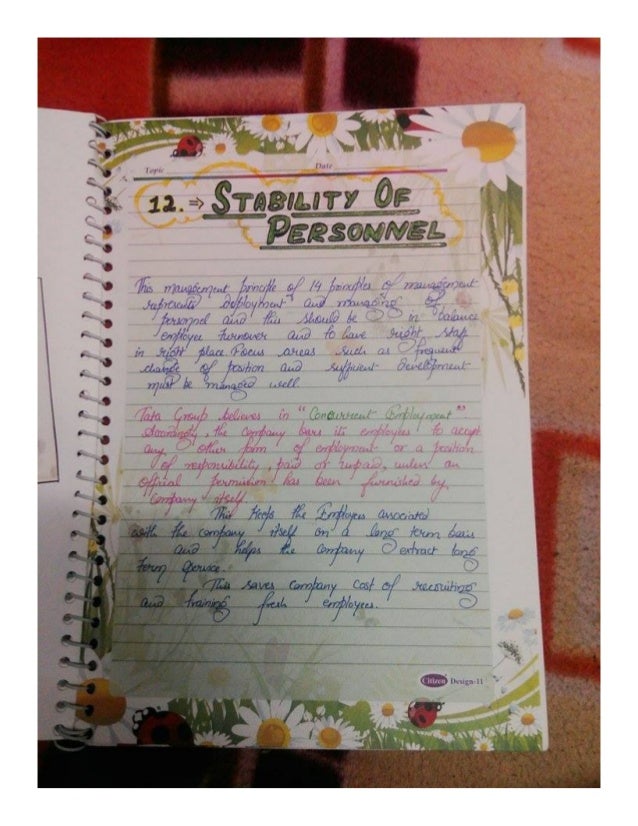 Topic Date
12. ⇒ STABILITY OF
PERSONNEL
This management principle of 14 principles of management
represents deployment and managing of
personnel and this should be in balance
employee turnover and to have right staff
in right place. Focus areas such as frequent
change of position and sufficient development
must be managed well.
Tata Group believes in "Concurrent Employment"
Accordingly, the company bars its employees to accept
any other form of employment or a position
of responsibility, paid or unpaid, unless an
official permission has been furnished by
company itself.
This keeps the Employees associated
with the company itself on a long term basis
and helps the company extract long
term service.
This saves company cost of recruiting
and training fresh employees.
Citizen Design-11